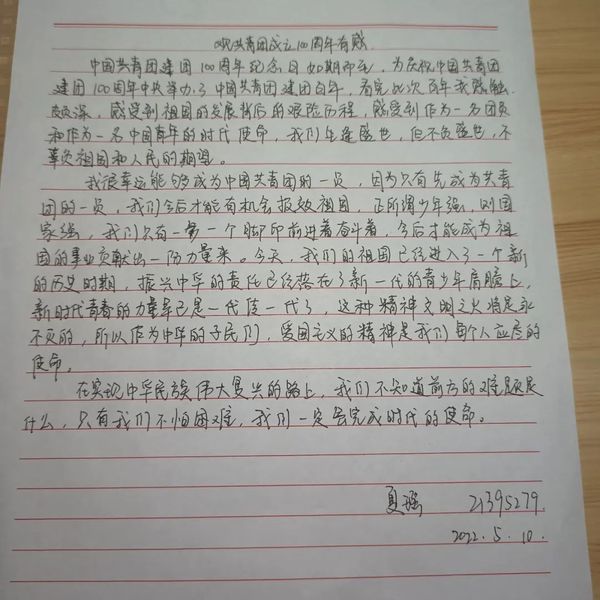 观共青团成立100周年有感
中国共青团建团100周年纪念日如期而至，为庆祝中国共青团
建团100周年中央举办了中国共青团建团百年，看完此次百年我感触
颇深，感受到祖国的发展背后的艰险历程，感受到作为一名团员
和作为一名中国青年的时代使命，我们生逢盛世，但不负盛世，不
辜负祖国和人民的期望。
我很幸运能够成为中国共青团的一员，因为只有先成为共青
团的一员，我们今后才能有机会报效祖国，正所谓少年强，则国
家强，我们只有一步一个脚印前进着奋斗着，今后才能成为祖
国的事业贡献出一份力量来。今天，我们的祖国已经进入了一个新
的历史时期，振兴中华的责任已经落在了新一代的青少年肩膀上，
新时代青春的力量早已是一代传一代了，这种精神文明之火将是永
不灭的，所以作为中华的子民们，爱国主义的精神是我们每个人应尽的
使命。
在实现中华民族伟大复兴的路上，我们不知道前方的难题是
什么，只有我们不怕困难，我们一定会完成时代的使命。
夏瑶 21395279
2022.5.10.